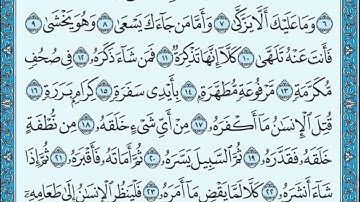 ﴿٦﴾ وَمَا عَلَيْكَ أَلَّا يَزَّكَّىٰ ﴿٧﴾ وَأَمَّا مَن جَآءَكَ يَسْعَىٰ ﴿٨﴾ وَهُوَ يَخْشَىٰ ﴿٩﴾
فَأَنتَ عَنْهُ تَلَهَّىٰ ﴿١٠﴾ كَلَّآ إِنَّهَا تَذْكِرَةٌ ﴿١١﴾ فَمَن شَآءَ ذَكَرَهُۥ ﴿١٢﴾ فِي صُحُفٍ
مُّكَرَّمَةٍ ﴿١٣﴾ مَّرْفُوعَةٍ مُّطَهَّرَةٍۭ ﴿١٤﴾ بِأَيْدِي سَفَرَةٍ ﴿١٥﴾ كِرَامٍۭ بَرَرَةٍ ﴿١٦﴾
قُتِلَ ٱلْإِنسَٰنُ مَآ أَكْفَرَهُۥ ﴿١٧﴾ مِنْ أَيِّ شَيْءٍ خَلَقَهُۥ ﴿١٨﴾ مِن نُّطْفَةٍ
خَلَقَهُۥ فَقَدَّرَهُۥ ﴿١٩﴾ ثُمَّ ٱلسَّبِيلَ يَسَّرَهُۥ ﴿٢٠﴾ ثُمَّ أَمَاتَهُۥ فَأَقْبَرَهُۥ ﴿٢١﴾ ثُمَّ إِذَا
شَآءَ أَنشَرَهُۥ ﴿٢٢﴾ كَلَّا لَمَّا يَقْضِ مَآ أَمَرَهُۥ ﴿٢٣﴾ فَلْيَنظُرِ ٱلْإِنسَٰنُ إِلَىٰ طَعَامِهِۦٓ